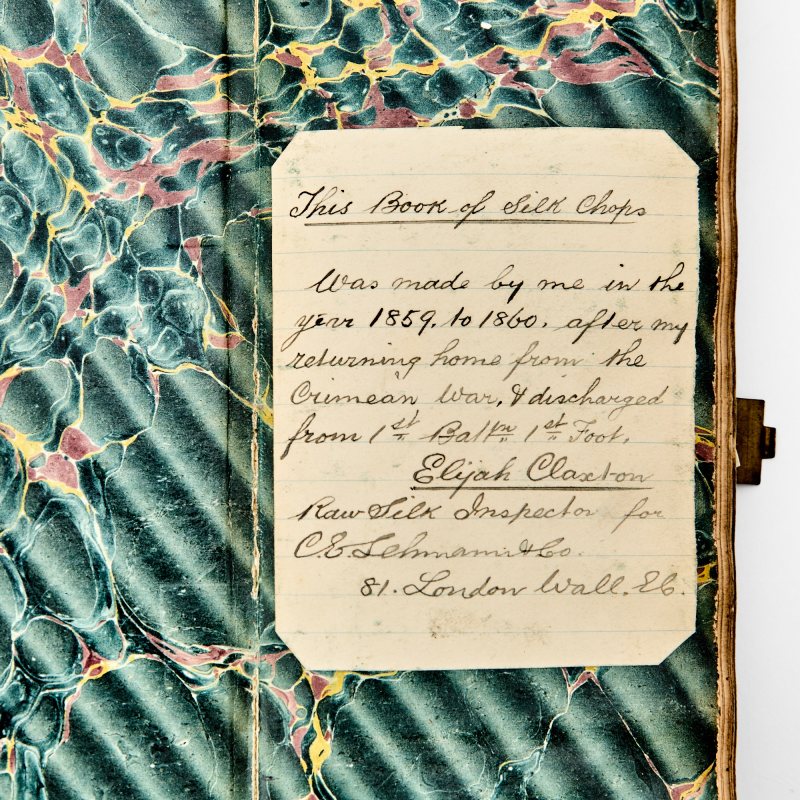 This Book of Silk Chops
Was made by me in the
year 1859. to 1860. after my
returning home from the
Crimean War, & discharged
from 1st Battn 1st Foot.
Elijah Claxton
Raw Silk Inspector for
C.E. Lehmann & Co.
81. London Wall. EC.